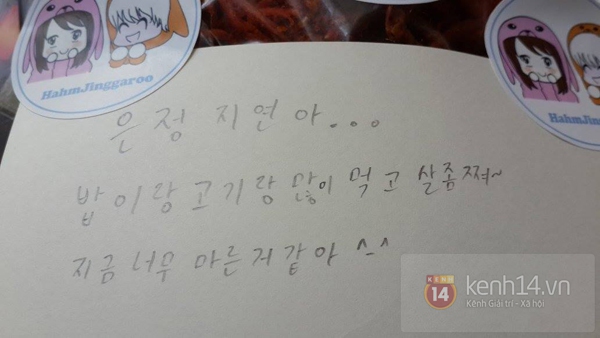 HahmJinggaroo
HahmJinggaroo
은정 지연아...
밥이랑 고기랑 많이 먹고 살좀쪄~
지금 너무 마른거같아 ^-^
KENH
14
kenh14.vn
Kênh Giải trí - Xã hội